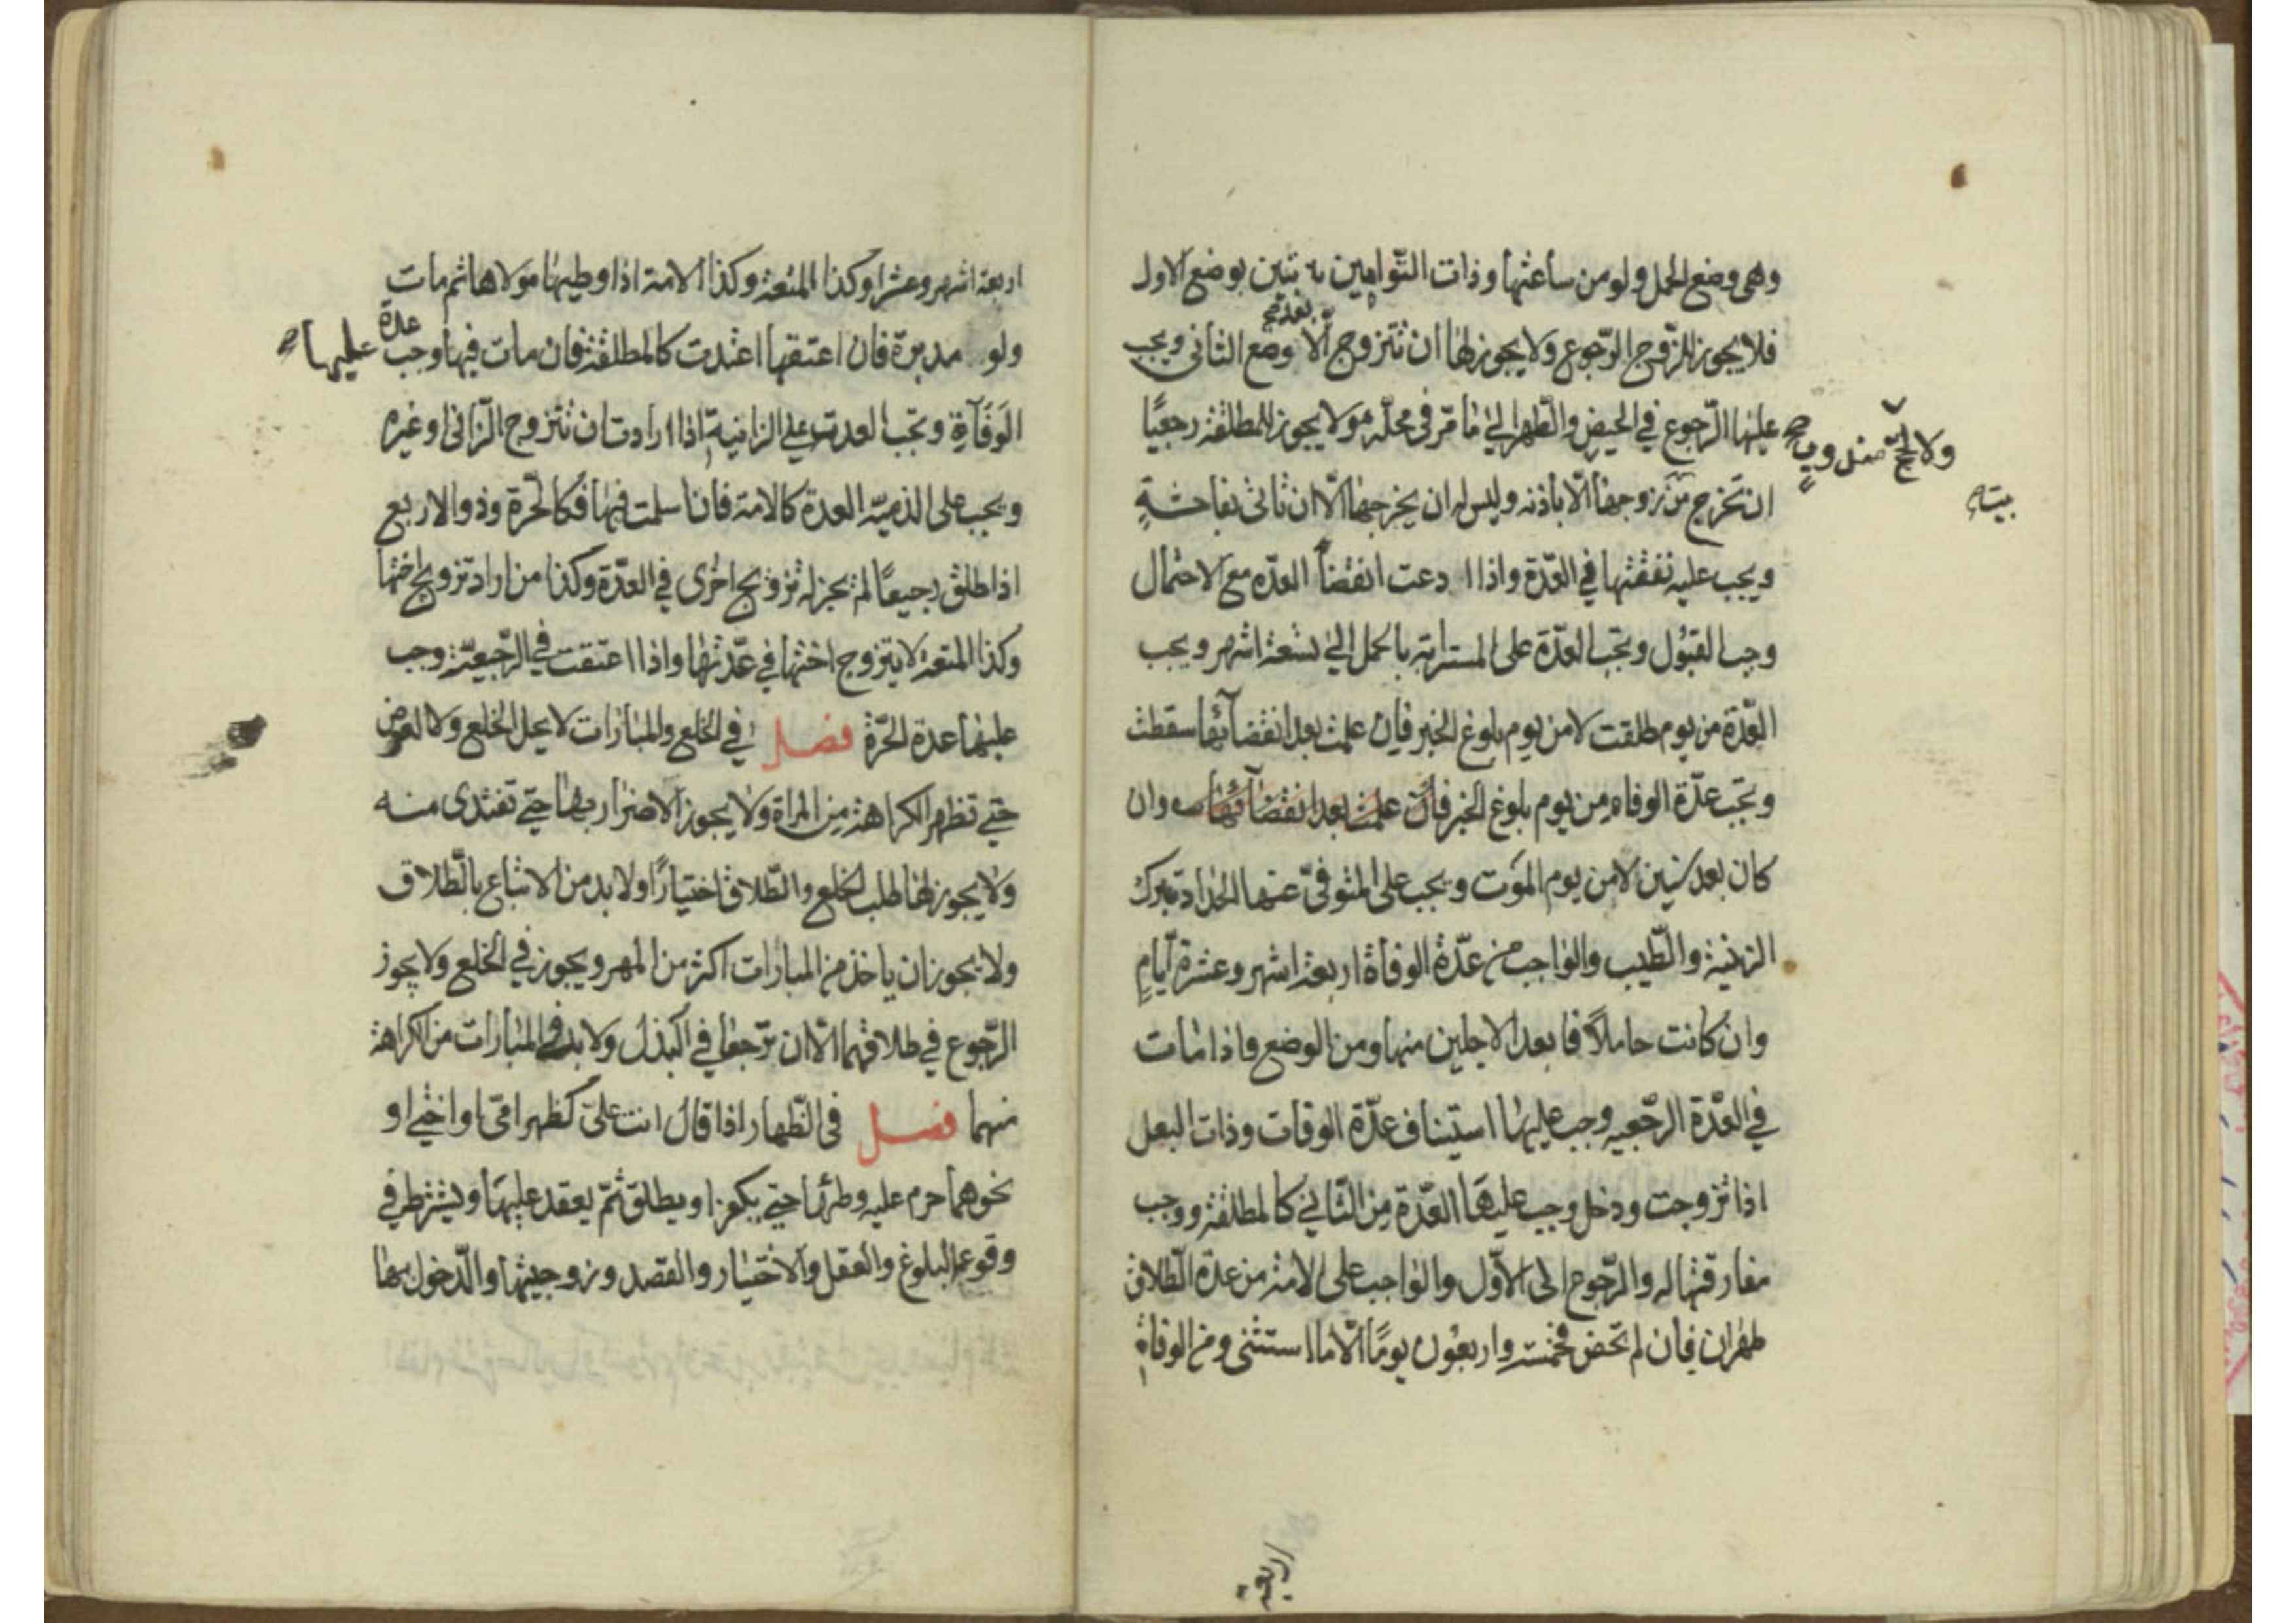 وهى وضع الحمل ولو من ساعتها وذات التوامين تبين بوضع الاول
فلا يجوز للزوج الرّجوع ولا يجوز لها ان تتزوج الّا بعد وضع الثانى ويجب
عليها الرّجوع في الحيض والطّهر الى ما مرّ فى محلّه ولا يجوز للمطلقة رجعيًا
ولا لحجّ مندوب صح
بيته
ان تخرج من زوجها الّا باذنه وليس له ان يخرجها الّا ان تاتى بفاحشةٍ
ويجب عليه نفقتها في العدّة واذا ادعت انقضاء العدّه مع الاحتمال
وجب القبول وتجب العدّة على المسترابة بالحمل الى تسعة اشهر ويجب
العدّة من يوم طلقت لا من يوم بلوغ الخبر فان علمت بعد انقضآئها سقطت
وتجب عدّة الوفاه من يوم بلوغ الخبر فان علمت بعد انقضآئها وان
كان بعد سنين لا من يوم الموت ويجب على المتوفىّ عنها الحداد بترك
الزينة والطّيب والواجب من عدّة الوفاة اربعة اشهر وعشرة ايّامٍ
وان كانت حاملاً فابعد الاجلين منها ومن الوضع واذا مات
في العدّة الرّجعيه وجب عليها استيناف عدّة الوفات وذات البعل
اذا تزوجت ودخل وجب عليها العدّة من الثّانى كالمطلقة ووجب
مفارقتها له والرّجوع الى الاوّل والواجب على الامة من عدة الطّلاق
طهران فان لم تحض فخمسة واربعون يومًا الّا ما استثنى ومن الوفاة
اربعة
اربعة اشهر وعشرا وكذا المتعة وكذا الامة اذا وطيها مولاها ثم مات
ولو مدبرة فان اعتقها اعتدت كالمطلقة فان مات فيها وجب عليها عدة صح
الوفآة وتجب العدت على الزانية اذا ارادت ان تتزوج الزّانى او غيره
ويجب على الذميّه العدة كالامة فان اسلمت فيها فكالحرّة وذو الاربع
اذا طلق رجيعًا لم يجز له تزويج اخرى في العدّة وكذا من اراد تزويج اختها
وكذا المتعة لا يتزوج اختها في عدّتها واذا اعتقت في الرّجيعّة وجب
عليها عدة الحرّة فصل في الخلع والمبارات لا يحل الخلع ولا العوض
حتى تظهر الكراهة من المراة ولا يجوز الاضرار بها حتى تفتدى منه
ولا يجوز لها طلب الخلع والطّلاق اختيارًا ولا بد من الاتباع بالطّلاق
ولا يجوز ان ياخذ من المبارات اكثر من المهر ويجوز في الخلع ولا يجوز
الرّجوع في طلاقهما الّا ان ترّجعا في البذل ولا بد في المبارات من الكراهة
منهما فصل فى الظّهار اذا قال انت علىّ كظهر امىّ او اختى او
نحوهما حرم عليه وطئها حتى يكفر او يطلق ثمّ يعقد عليها ويشترط في
وقوعه البلوغ والعقل والاختيار والقصد وزوجيتها والدّخول بها